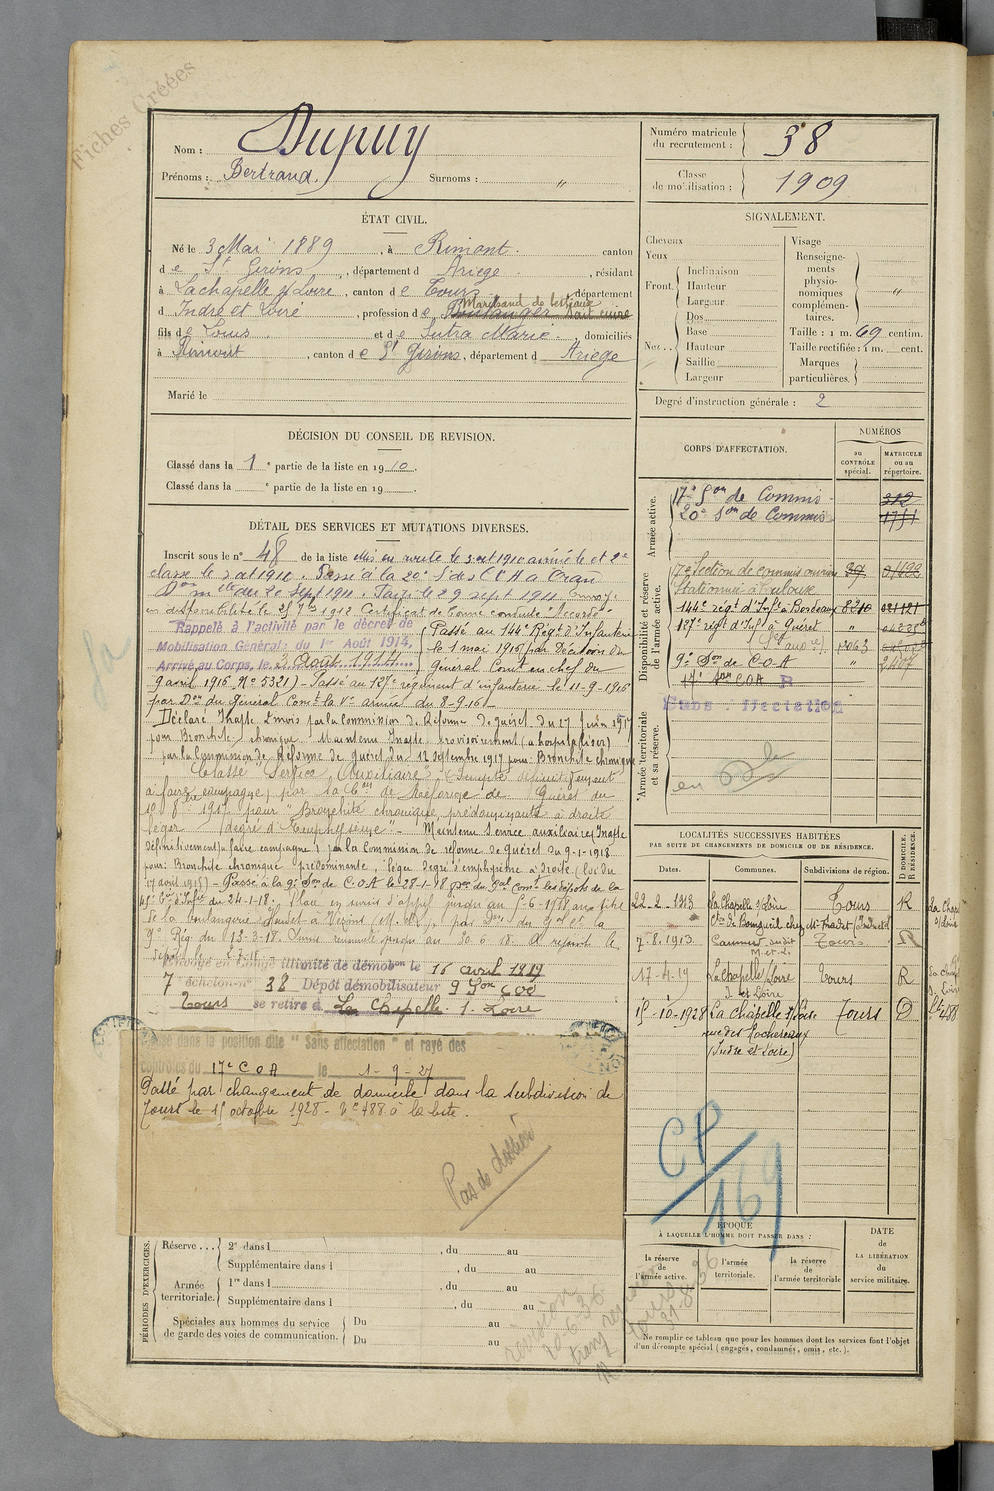 Fiches Créées
Nom : Dupuy
Prénoms : Bertrand. Surnoms : "
Numéro matricule du recrutement : 38
Classe de mobilisation : 1909
ÉTAT CIVIL.
Né le 3 Mai 1889, à Rimont. canton
de St Girons, département d Ariège, résidant
à Lachapelle s/ Loire, canton de Tours, département
Marchand de bestiaux
d Indre et Loire, profession de Boulanger sait cuire
fils de Louis et de Sutra Marie. domiciliés
à Rimont, canton de St Girons, département d Ariège
Marié le
DÉCISION DU CONSEIL DE REVISION.
Classé dans la 1e partie de la liste en 1910.
Classé dans la e partie de la liste en 19
DÉTAIL DES SERVICES ET MUTATIONS DIVERSES.
Inscrit sous le n° 48 de la liste Mis en route le 3 oct 1910 arrivé le et 2e
classe le 3 oct 1910. Passé à la 20e Son des C.O.A à Oran
Don melle du 20 Sept 1911. Parti le 29 sept 1911. Envoyé
en disponibilité le 25 7bre 1912 Certificat de bonne conduite "Accordé"
Rappelé à l'activité par le décret de
Mobilisation Générale du 1er Août 1914.
Arrivé au Corps, le 3 Août 1914
Passé au 144e Régt d'Infanterie
le 1 mai 1916 par Décision du
Général Comt en chef du
9 avril 1916 No 5321) - Passé au 127e régiment d'infanterie le 11-9-1916
par Don du Général Comt la Ve armée du 8-9-16
Déclaré Inapte 2 mois par la Commission de Réforme de Guéret du 27 Juin 1917
pour Bronchite chronique Maintenu Inapte provisoirement (a hospitaliser)
par la Commission de Réforme de Guéret du 12 septembre 1917 pour Bronchite chronique
Classé "Service Auxiliaire" (Inapte définitivement
à faire campagne) par la Con de Réforme de Guéret du
1917 pour "Bronchite chronique prédominante à droite
léger degré d'Emphysème" - Maintenu Service auxiliaire (Inapte
définitivement à faire campagne) par la Commission de réforme de Guéret du 9-1-1918
pour: Bronchite chronique prédominante, léger degré d'emphysème à droite (loi du
17 août 1915) - Passé à la 9e Son de C.O.A le 28-1-18 par du Gal Comt les dépôts de la
du 24-1-18. Placé en sursis d'appel jusqu'au 5-6-1918 au titre
de la boulangerie
9e Rég. du 13-3-18. Sursis renouvelé jusqu'au 30-6-18. A rejoint le
Envoyé en Congé illimité de démobon le 16 avril 1919
7 échelon n° 38 Dépôt démobilisateur 9 Son COA
Tours se retire à La Chapelle. s. Loire
Classé dans la position dite "Sans affectation" et rayé des
contrôles du 17e C O A le 1-9-27
Passé par changement de domicile dans la subdivision de
Tours le 15 octobre 1928 - No 488 à la liste.
Pas de dossier
SIGNALEMENT.
Cheveux
Yeux
Front. Inclinaison
Hauteur
Largeur
Nez Dos
Base
Hauteur
Saillie
Largeur
Visage
Renseignements physionomiques complémentaires. "
Taille : 1 m. 69 centim.
Taille rectifiée : 1 m. cent.
Marques particulières.
Degré d'instruction générale : 2
CORPS D'AFFECTATION.
NUMÉROS
au CONTRÔLE spécial.
MATRICULE ou au répertoire.
Armée active.
17e Son de Commis 312
20e Son de Commis 1751
Disponibilité et réserve de l'armée active.
17e Section de commis ouvriers
Stationné à Toulouse
144e régt d'Infie à Bordeaux 8210
127e régt d'Infie à Guéret "
(Sce aux re) 13063
9e Son de C-O-A " 3407
17e Son COA
Sans affectation
Armée territoriale et sa réserve.
LOCALITÉS SUCCESSIVES HABITÉES
PAR SUITE DE CHANGEMENTS DE DOMICILE OU DE RÉSIDENCE.
Dates. Communes. Subdivisions de région. D DOMICILE. R RÉSIDENCE.
22-2-1913 La Chapelle s/Loire Tours R
7-8.1913 Tours
17-4-19 La chapelle s/Loire Tours R
I. et Loire
15-10-1928 La Chapelle s/Loire Tours D
rue des Rochereaux
(Indre et Loire)
CP/169
ÉPOQUE
À LAQUELLE L'HOMME DOIT PASSER DANS :
la réserve de l'armée active.
l'armée territoriale.
la réserve de l'armée territoriale
DATE de LA LIBÉRATION du service militaire.
Ne remplir ce tableau que pour les hommes dont les services font l'objet
d'un décompte spécial (engagés, condamnés, omis, etc.).
PÉRIODES D'EXERCICES.
Réserve ... 2e dans l , du au
Supplémentaire dans l , du au
Armée territoriale. 1re dans l , du au
Supplémentaire dans l , du au
Spéciales aux hommes du service
de garde des voies de communication.
Du au
Du au
révision
20-6-36